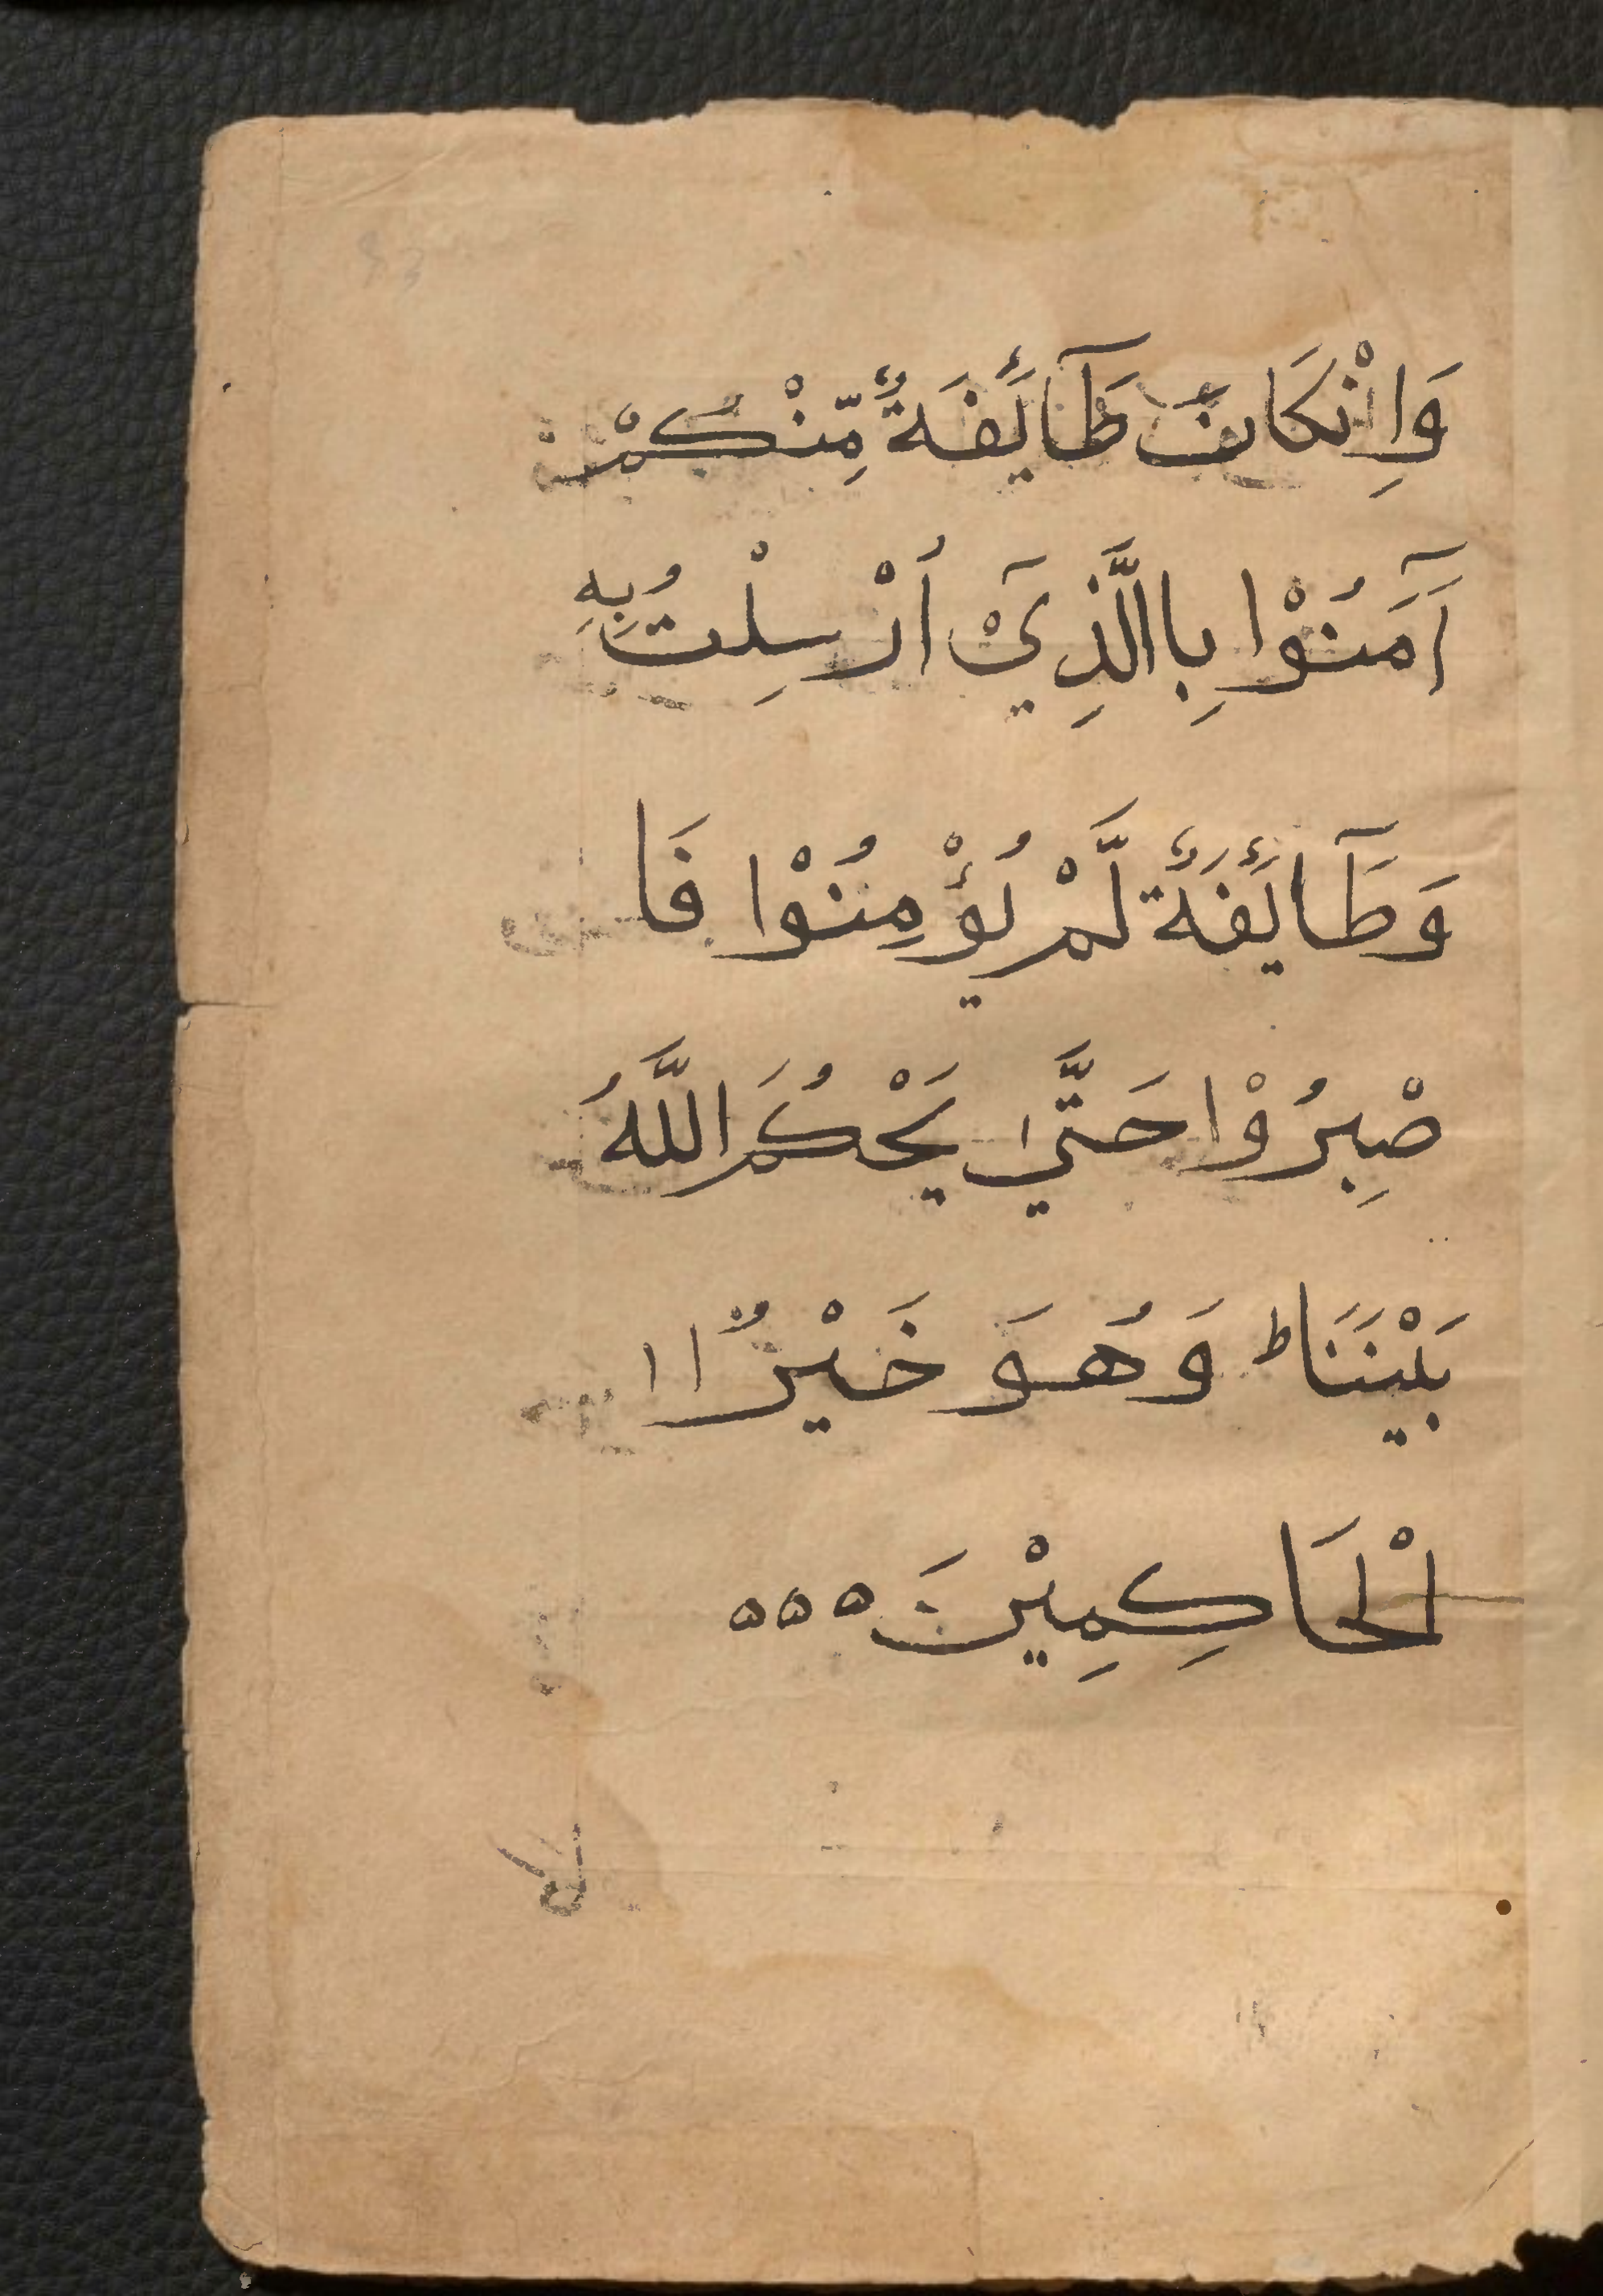 وَاِنْكَانَ طَآئِفَةٌ مِّنْكُمْ
آَمَنُوْا بِاالَّذِيْٓ اُرْسِلْتُ بِهِ
وَطَآئِفَةٌ لَّمْ يُؤْمِنُوْا فَا
صْبِرُوْا حَتَّىٰ يَحْكُمَ اللَّهُ
بَيْنَنَا ط وَهُوَ خَيْرٌ اا
الْحَاكِمِيْنَ ٥٥٥